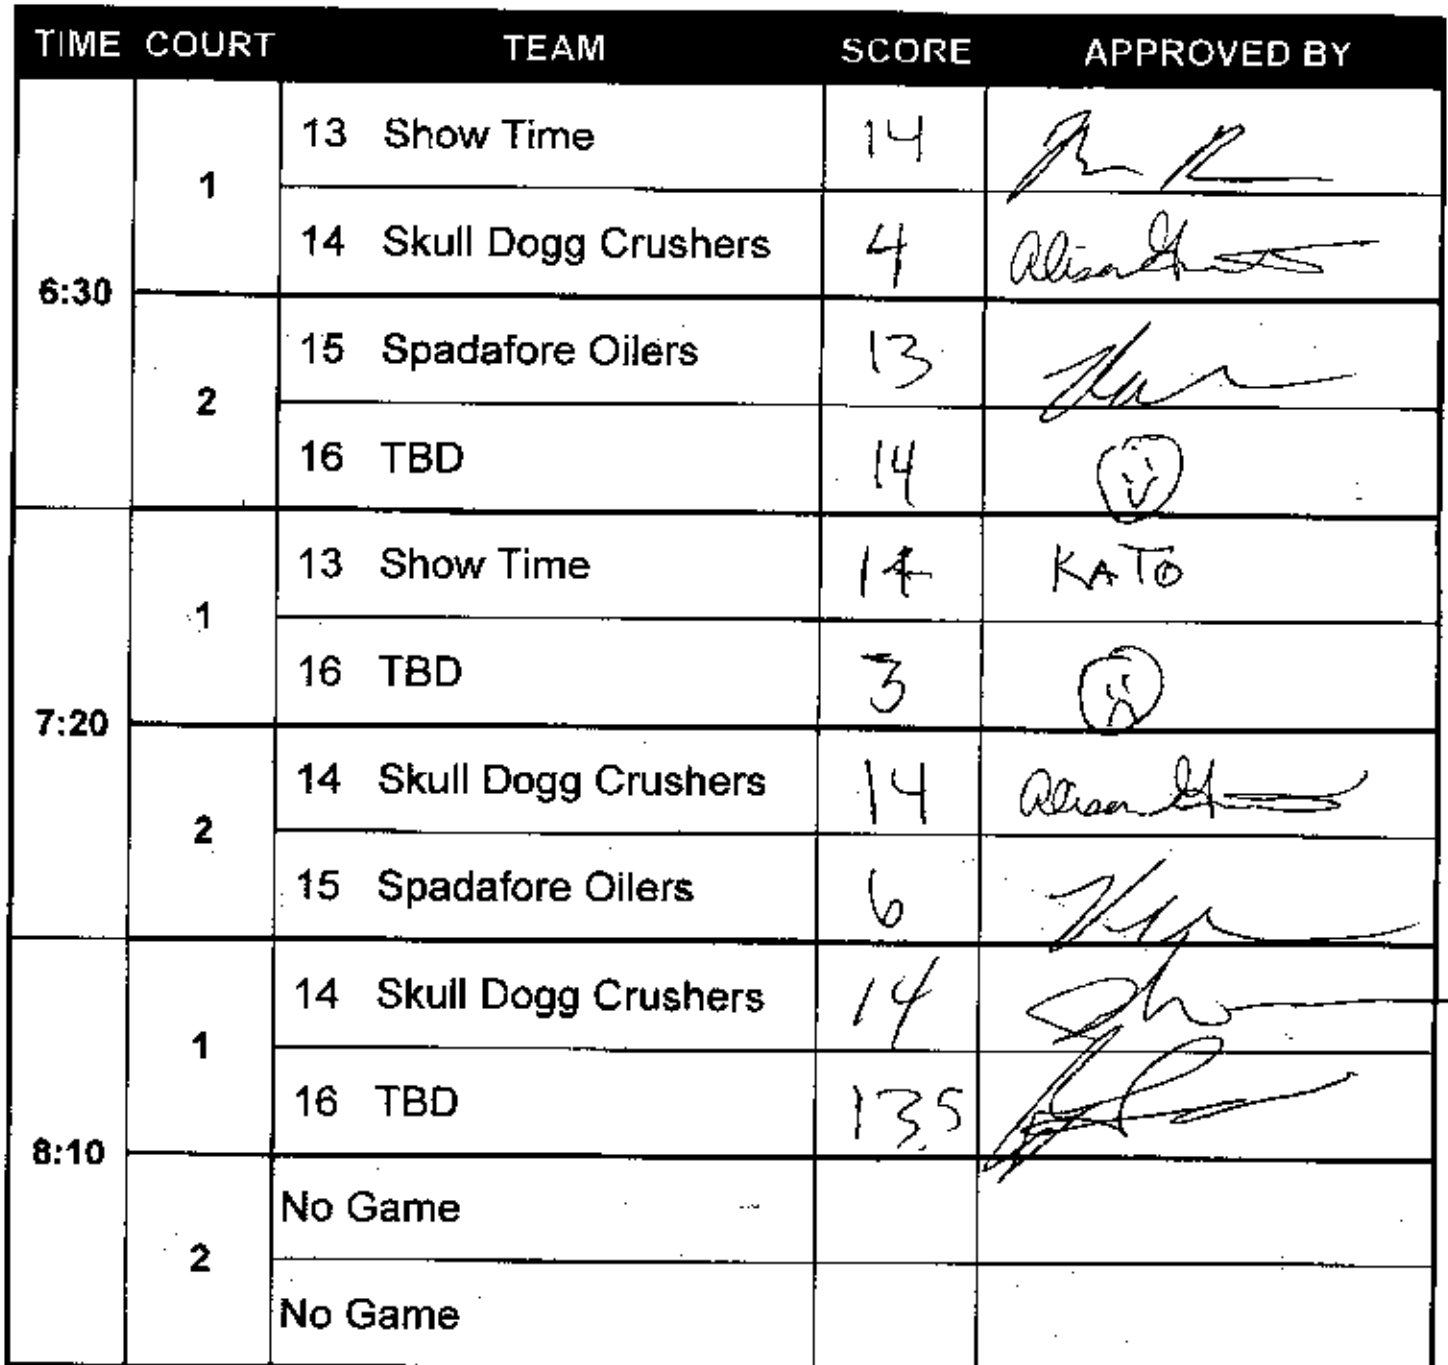 TIME COURT TEAM SCORE APPROVED BY
6:30
1
13 Show Time 14
14 Skull Dogg Crushers 4 Alison
2
15 Spadafore Oilers 13
16 TBD 14
7:20
1
13 Show Time 14 KATO
16 TBD 3
2
14 Skull Dogg Crushers 14 Alison
15 Spadafore Oilers 6
8:10
1
14 Skull Dogg Crushers 14
16 TBD 13.5
2
No Game
No Game